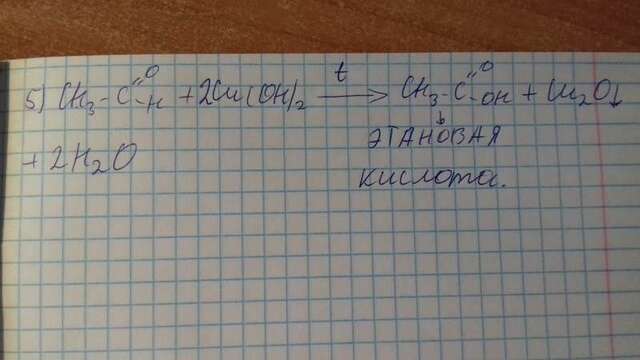 5) CH₃-C=O-H + 2Cu(OH)₂ t→ CH₃-C=O-OH + Cu₂O↓
+ 2H₂O
↓
ЭТАНОВАЯ
кислота.